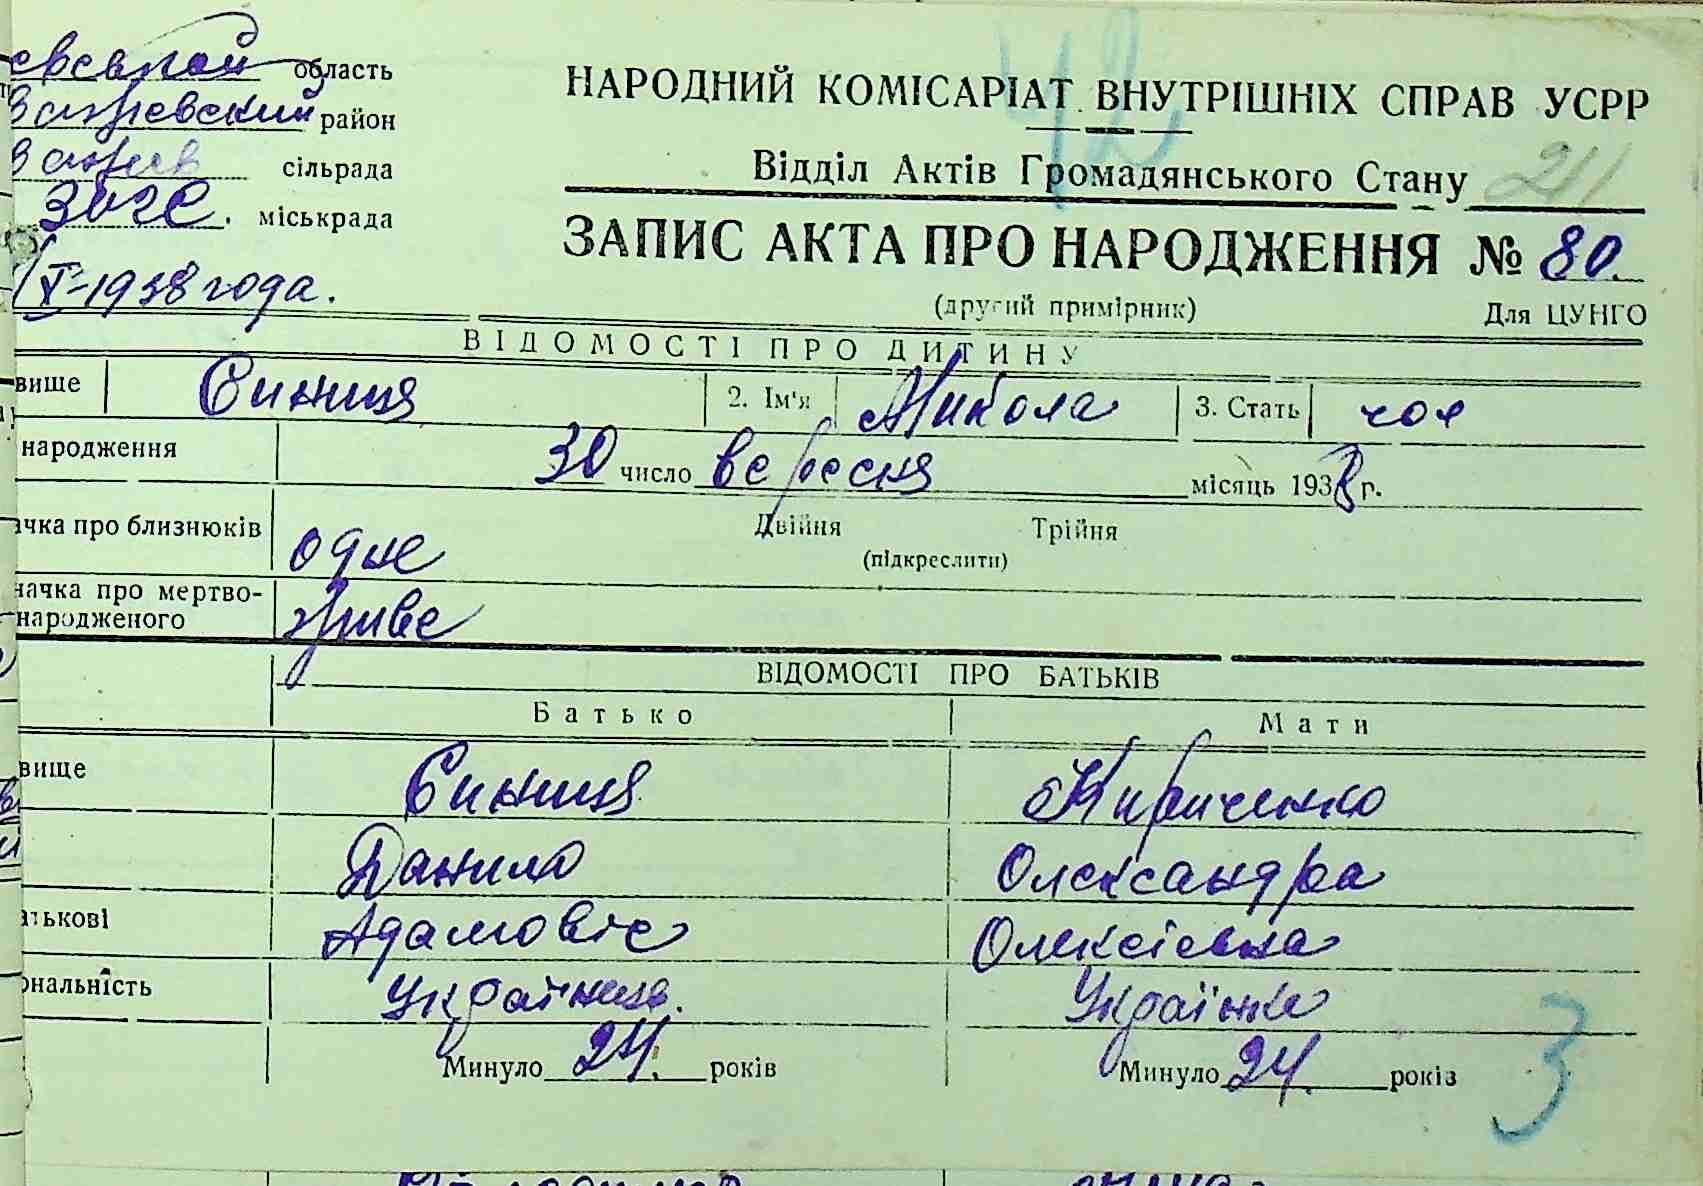 область
район
сільрада
ЗАГС. міськрада
1938 года.
42
НАРОДНИЙ КОМІСАРІАТ ВНУТРІШНІХ СПРАВ УСРР
Відділ Актів Громадянського Стану
ЗАПИС АКТА ПРО НАРОДЖЕННЯ № 80.
(другий примірник) Для ЦУНГО
ВІДОМОСТІ ПРО ДИТИНУ
вище Синиця 2. Ім'я Микола 3. Стать чол
народження 30 число вересня місяць 1938 г.
ачка про близнюків одне Двійня Трійня
(підкреслити)
начка про мертво-
народженого живе
ВІДОМОСТІ ПРО БАТЬКІВ
Батько Мати
вище Синиця Кириченко
Данило Олександра
атькові Адамовіч Олексіевна
ональність Українець. Українка
Минуло 24. років Минуло 24. років
3